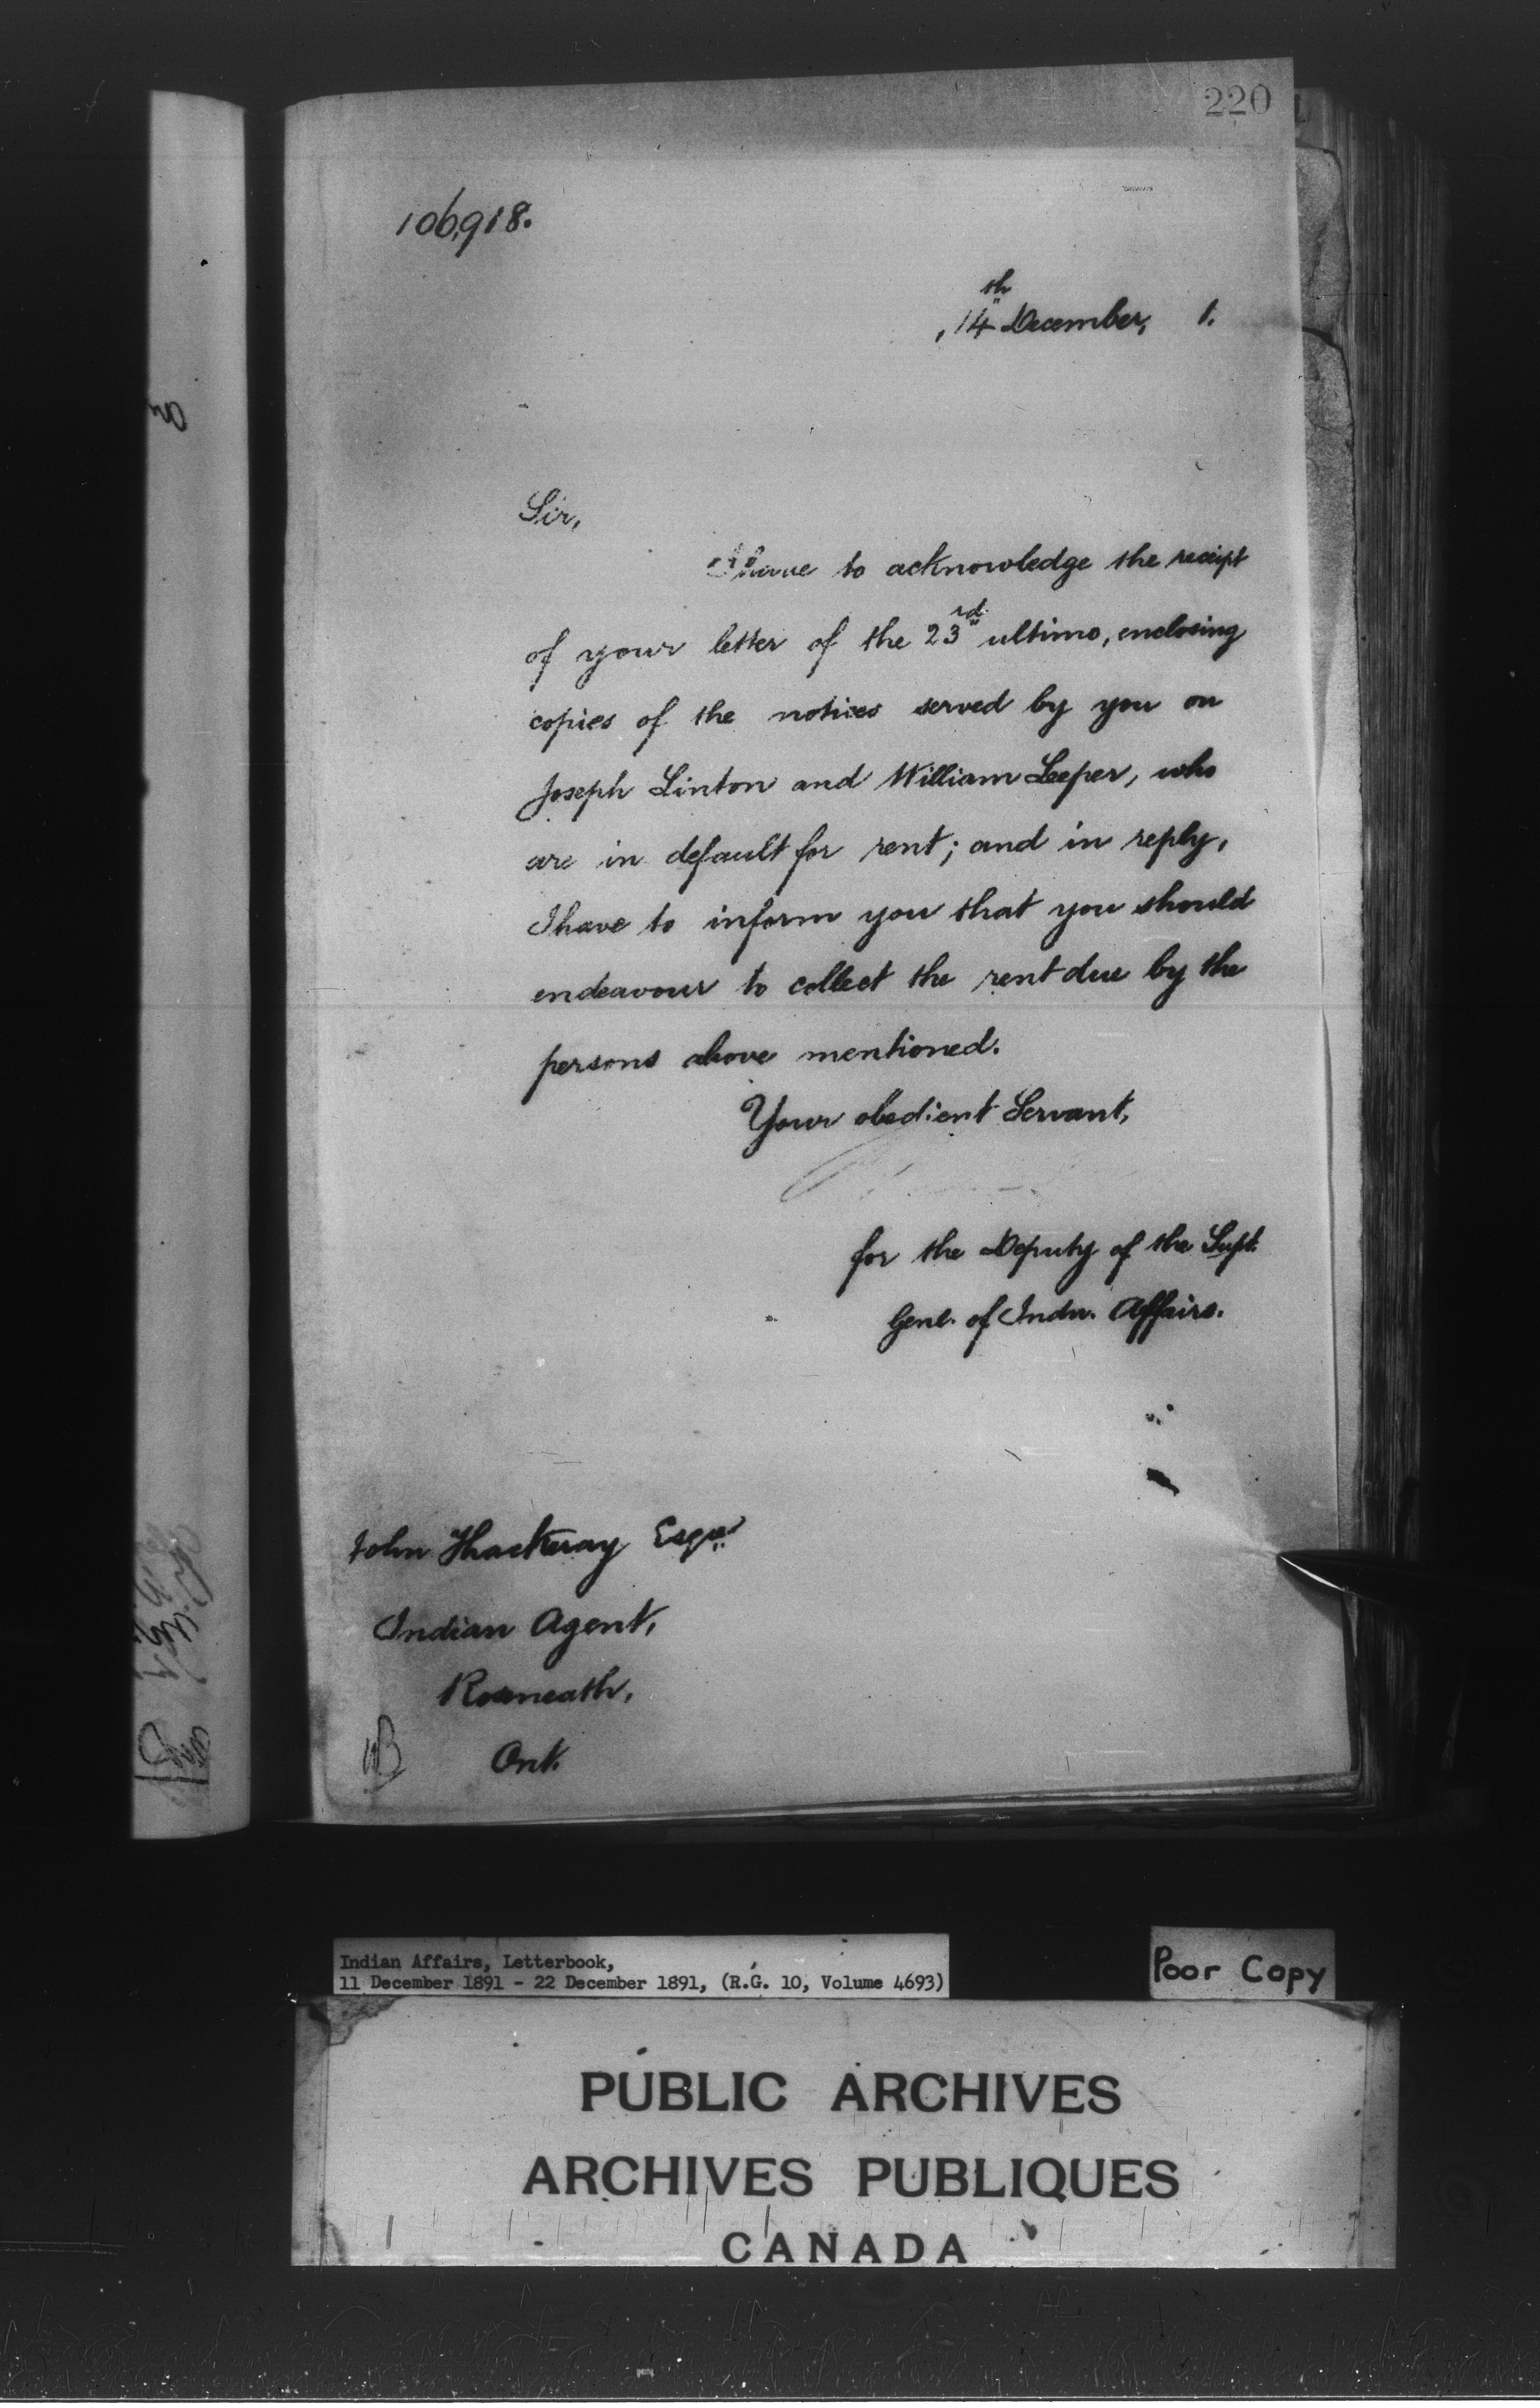 220
106,918.
14th December, 1.
Sir,
I have to acknowledge the receipt
of your letter of the 23rd ultimo, enclosing
copies of the notices served by you on
Joseph Linton and William Leeper, who
are in default for rent; and in reply,
I have to inform you that you should
endeavour to collect the rent due by the
persons above mentioned.
Your obedient Servant,
for the Deputy of the Supt.
Genl. of Indn. Affairs.
John Thackeray Esqre.
Indian Agent,
Roseneath,
Ont.
Indian Affairs, Letterbook,
11 December 1891 - 22 December 1891, (R.G. 10, Volume 4693)
Poor Copy
PUBLIC ARCHIVES
ARCHIVES PUBLIQUES
CANADA